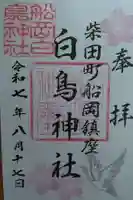 奉拝
柴田町船岡鎮座
白鳥神社
令和七年八月十七日
船岡白鳥神社